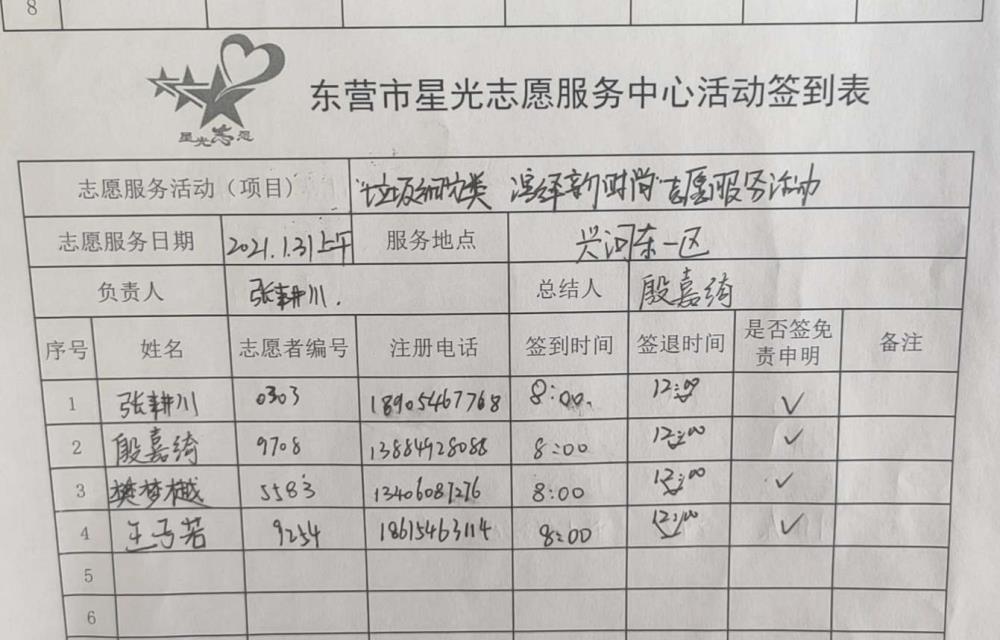 8
星光志愿
东营市星光志愿服务中心活动签到表
志愿服务活动（项目） "垃圾细分类 演绎新时尚"志愿服务活动
志愿服务日期 2021.1.31上午 服务地点 兴河东一区
负责人 张耕川. 总结人 殷嘉绮
序号 姓名 志愿者编号 注册电话 签到时间 签退时间 是否签免责申明 备注
1 张耕川 0303 18905467768 8:00. 12:00 ✓
2 殷嘉绮 9708 13884928088 8:00 12:00 ✓
3 樊梦樾 5583 13406087276 8:00 12:00 ✓
4 王子若 9254 18615463114 8:00 12:00 ✓
5
6